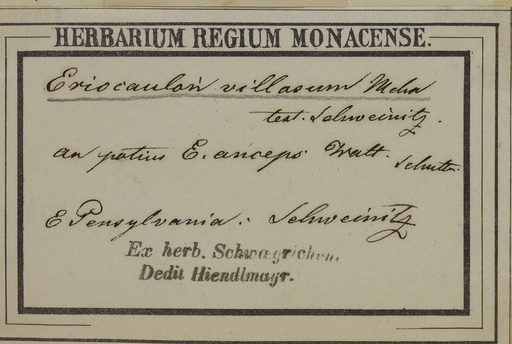 HERBARIUM REGIUM MONACENSE.
Eriocaulon villosum Mchx
test. Schweinitz.
an potius E. anceps Walt.
E Pensylvania. Schweinitz
Ex herb. Schwaegrichen.
Dedit Hiendlmayr.